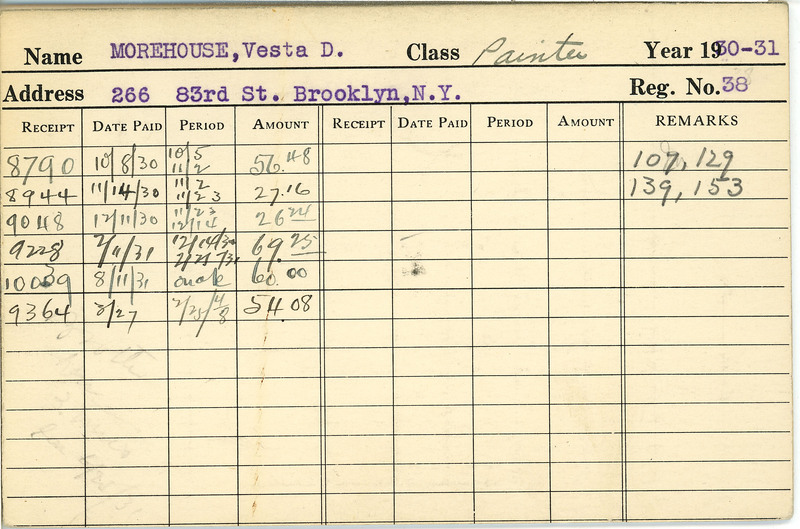 Name MOREHOUSE,Vesta D. Class Painter Year 1930-31
Address 266 83rd St. Brooklyn,N.Y. Reg. No. 38
RECEIPT DATE PAID PERIOD AMOUNT RECEIPT DATE PAID PERIOD AMOUNT REMARKS
8790 10/8/30 10/5 11/2 56.48 107, 129
8944 11/14/30 11/2 11/23 27.16 139, 153
9048 12/11/30 11/23 12/14 26 24
9228 2/11/31 12/14/30 69.25
8/11/31 60.00
9364 54.08